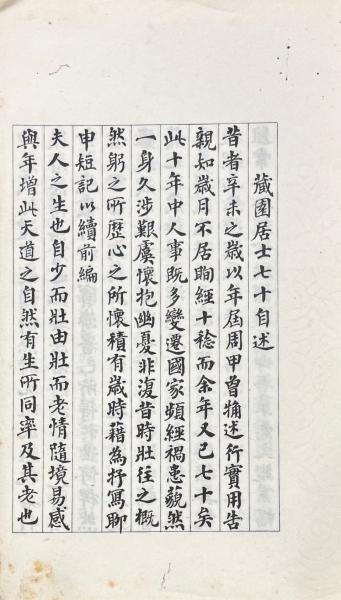 藏園居士七十自述
昔者辛未之歲以年屆周甲曾補述行實用告
親知歲月不居眴經十稔而余年又已七十矣
此十年中人事既多變遷國家頻經禍患藐然
一身久涉艱虞懷抱幽憂非復昔時壯往之概
然躬之所歷心之所懷積有歲時藉為抒寫聊
申短記以續前編
夫人之生也自少而壯由壯而老情隨境易感
與年增此天道之自然有生所同率及其老也